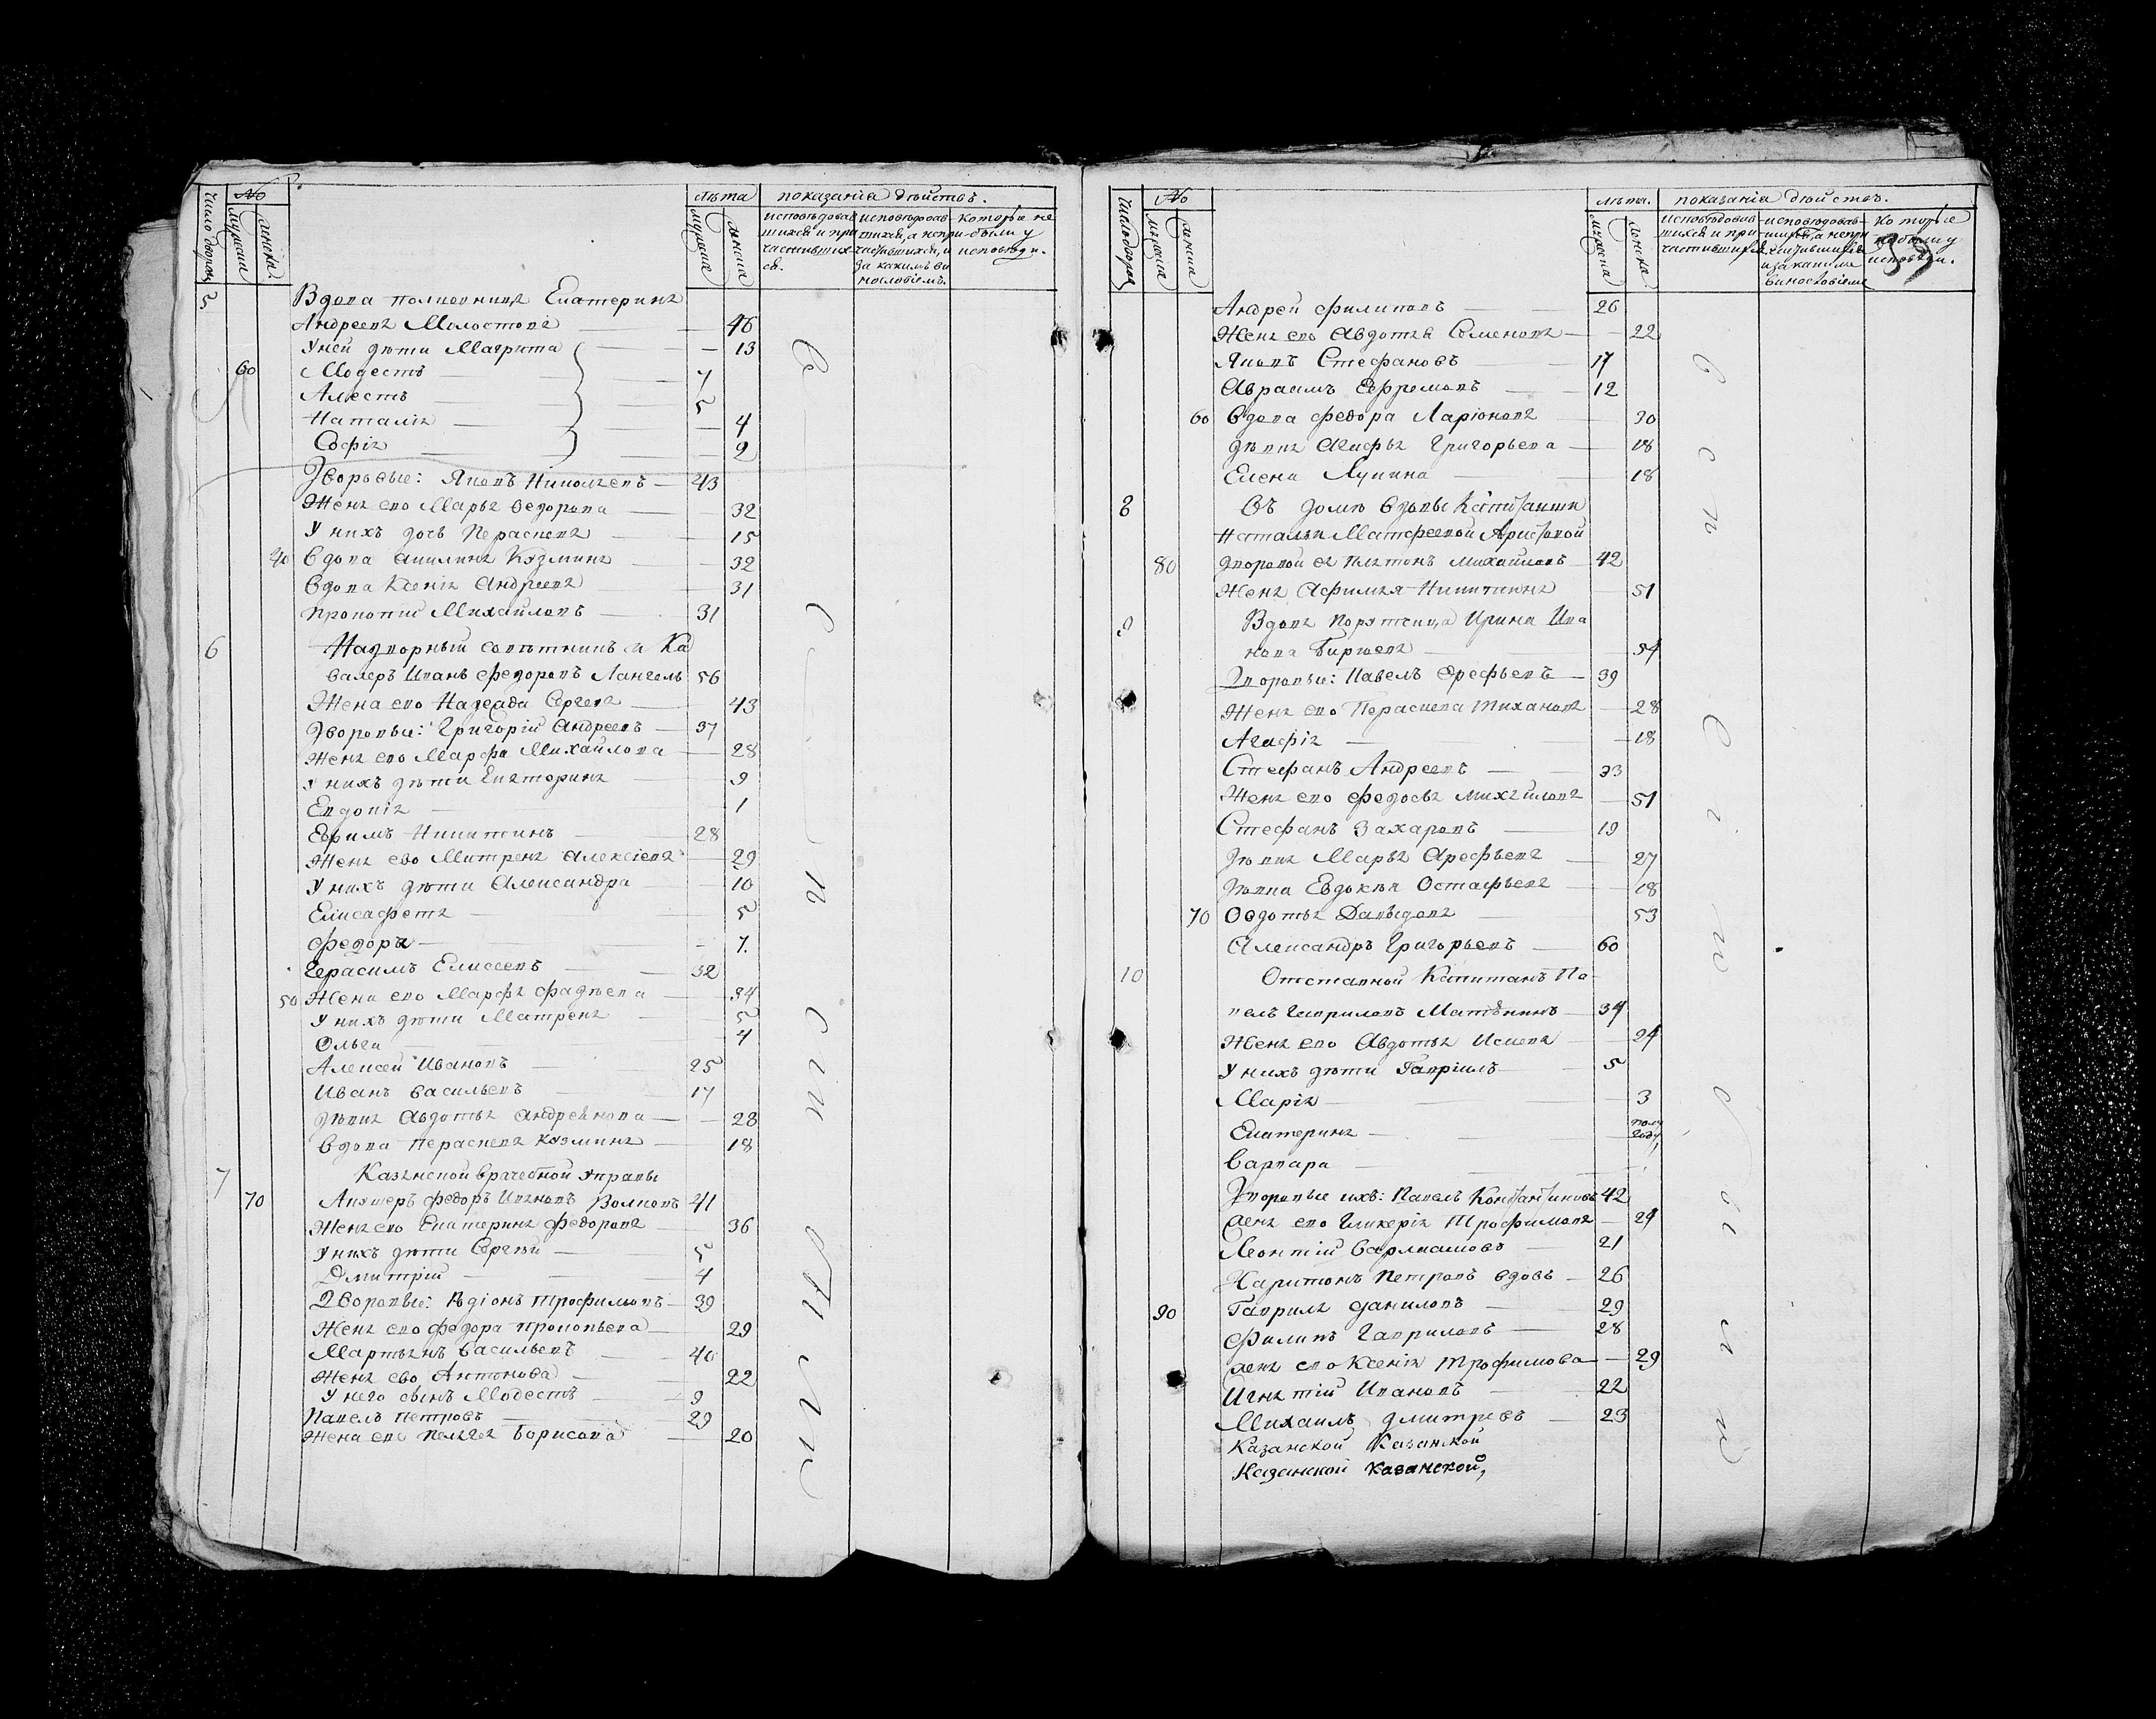 число дворовъ
№
мужеска
женска
лѣта
мужеска
женска
показанія дѣйствъ.
исповѣдовав
шихся и при
частивших
ся.
исповѣдовав
шихся, а непри
частившихся, и
за какимъ ви
нословіемъ
которые не
были у
исповѣди.
5 Вдова полковница Екатерина
Андреева Милостова 46
У ней дѣти Маргрита 13
60 Модестъ 7
Алкестъ 5
Наталіа 4
Софіа 2
Дворовые: Яковъ Николаевъ 43
Жена ево Марья Федорова 32
У нихъ дочь Пераскева 15
40 Вдова Акилина Козмина 32
Вдова Ксеніа Андреева 31
Прокопій Михайловъ 31
6 Надворный совѣтникъ и Ка
валеръ Иванъ Федоровъ Лангель 56
Жена ево Надежда Сергева 43
Дворовые: Григорій Андреевъ 37
Жена ево Марфа Михайлова 28
У нихъ дѣти Екатерина 9
Евдокіа 1
Ефимъ Никитинъ 28
Жена ево Матрена Алексіева 29
У нихъ дѣти Александра 10
Елисафета 5
Федора 7.
Герасимъ Елисеевъ 32
50 Жена ево Марфа Фадѣева 34
У нихъ дѣти Матрена 5
Ольга 4
Алексей Ивановъ 25
Иванъ Васильевъ 17
Дѣвка Авдотья Андреянова 28
Вдова Пераскева Козмина 18
7 Казанской врачебной управы
70 Акушеръ Федоръ Ивановъ Волковъ 41
Жена ево Екатерина Федорова 36
У нихъ дѣти Сергѣй 5
Дмитрій 4
Дворовые: Радіонъ Трофимовъ 39
Жена ево Федора Прокопьева 29
Мартынъ Васильевъ 40
Жена ево Антонова 22
У него сынъ Модестъ 9
Павелъ Петровъ 29
Жена ево Пелагея Борисова 20
число дворовъ
№
мужеска
женска
лѣта.
мужеска
женска
показанія дѣйствъ.
исповѣдовав
шихся и при
частившихся
исповѣдовав
шихся, а непри
частившихся
и за какимъ
винословіемъ
которые
не были у
исповѣди.
39
Андрей Филиповъ 26
Жена ево Авдотья Семенова 22
Яковъ Стефановъ 17
Авраамъ Ефремовъ 12
60 Вдова Федора Ларіонова 30
Дѣвка Агафья Григорьева 18
Елена Лукина 18
8 Въ домѣ вдовы Капитанши
Натальи Матфеевой Аристовой
80 Дворовой ея Платонъ Михайловъ 42
Жена Афимья Никитина 51
9 Вдова Порутчица Ирина Ива
нова Биргаева 54
Дворовые: Павелъ Орефьевъ 39
Жена ево Пораскева Тиханова 28
Агафіа 18
Стефанъ Андреевъ 33
Жена ево Федосья Михайлова 51
Стефанъ Захаровъ 19
Дѣвка Марья Арефьева 27
Дѣвка Евдокія Остафьева 18
70 Овдотья Давыдова 53
Александръ Григорьевъ 60
10 Отставной Капитанъ Па
велъ Гавриловъ Матѣнинъ 34
Жена ево Авдотья Исаева 24
У нихъ дѣти Гавріилъ 5
Маріа 3
Екатерина полу году
Варвара
Дворовые ихъ: Павелъ Константиновъ 42
Жена ево Гликеріа Трофимова 24
Леонтій Варламовъ 21
Харитонъ Петровъ вдовъ 26
90 Гаврила Даниловъ 29
Филипъ Гавриловъ 28
Жена ево Ксеніа Трофимова 29
Игнатій Ивановъ 22
Михаилъ Дмитревъ 23
Казанской Казанской
Казанской Казанской,